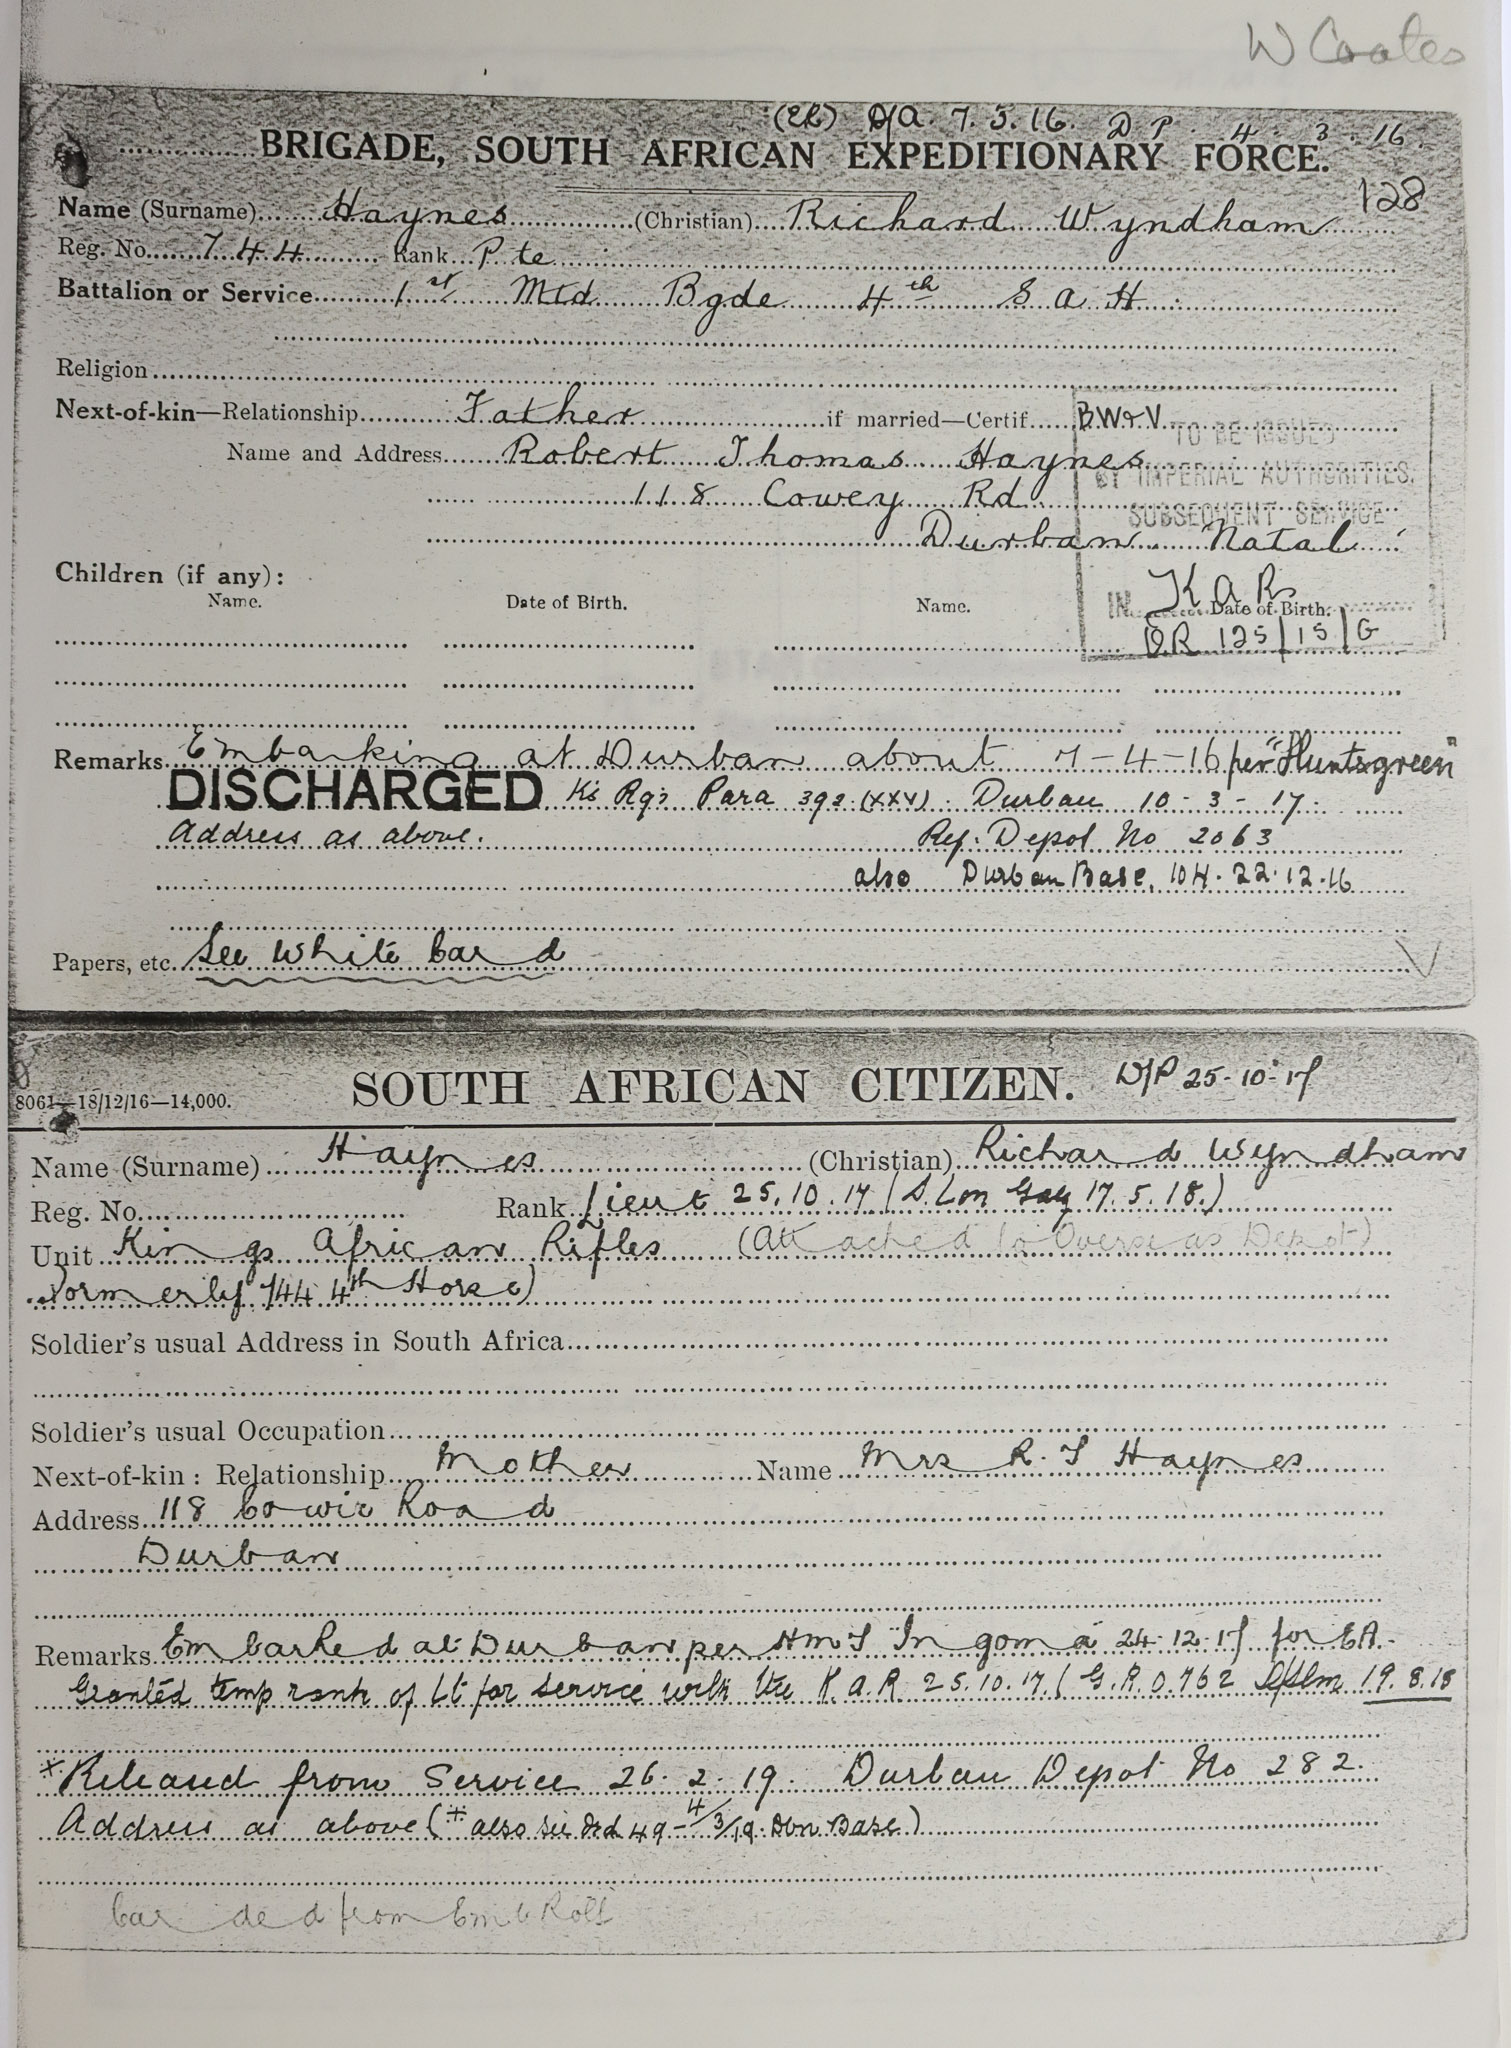 W Coates
(ER) D/A. 7.5.16. D P. 4.3.16.
BRIGADE, SOUTH AFRICAN EXPEDITIONARY FORCE.
128
Name (Surname) Haynes (Christian) Richard Wyndham
Reg. No. 744 Rank Pte
Battalion or Service 1st Mtd Bgde 4th S A H.
Religion
Next-of-kin—Relationship Father if married—Certif. BW&V
TO BE ISSUED
Name and Address Robert Thomas Haynes
BY IMPERIAL AUTHORITIES.
118 Cowey Rd
SUBSEQUENT SERVICE
Durban Natal
Children (if any):
IN K A Rs
Name. Date of Birth. Name. Date of Birth.
125/15/G
Remarks Embarking at Durban about 7-4-16 per "Huntsgreen"
DISCHARGED Ks Rgs Para 392 (XXV). Durban 10-3-17.
Address as above. Ref: Depot No 2063
also Durban Base, 104. 22.12.16
Papers, etc. See White Card
8061—18/12/16—14,000.
SOUTH AFRICAN CITIZEN. D/P 25-10-17
Name (Surname) Haynes (Christian) Richard Wyndham
Reg. No. Rank Lieut 25.10.17 (S. Lon Gaz 17.5.18.)
Unit Kings African Rifles (Attached to Overseas Depot)
Formerly 744 4th Horse)
Soldier's usual Address in South Africa
Soldier's usual Occupation
Next-of-kin: Relationship Mother Name Mrs R. T Haynes
Address 118 Cowie Road
Durban
Remarks Embarked at Durban per HMT Ingoma 24-12-17 for EA.
Granted temp rank of Lt for service with the K.A.R. 25.10.17. (G.R.O.762 D/Slm 19.8.18
*Released from Service 26.2.19. Durban Depot No 282.
Address as above (* also see Ord 49-4/3/19. Dbn Base)
Carded from Emb Roll